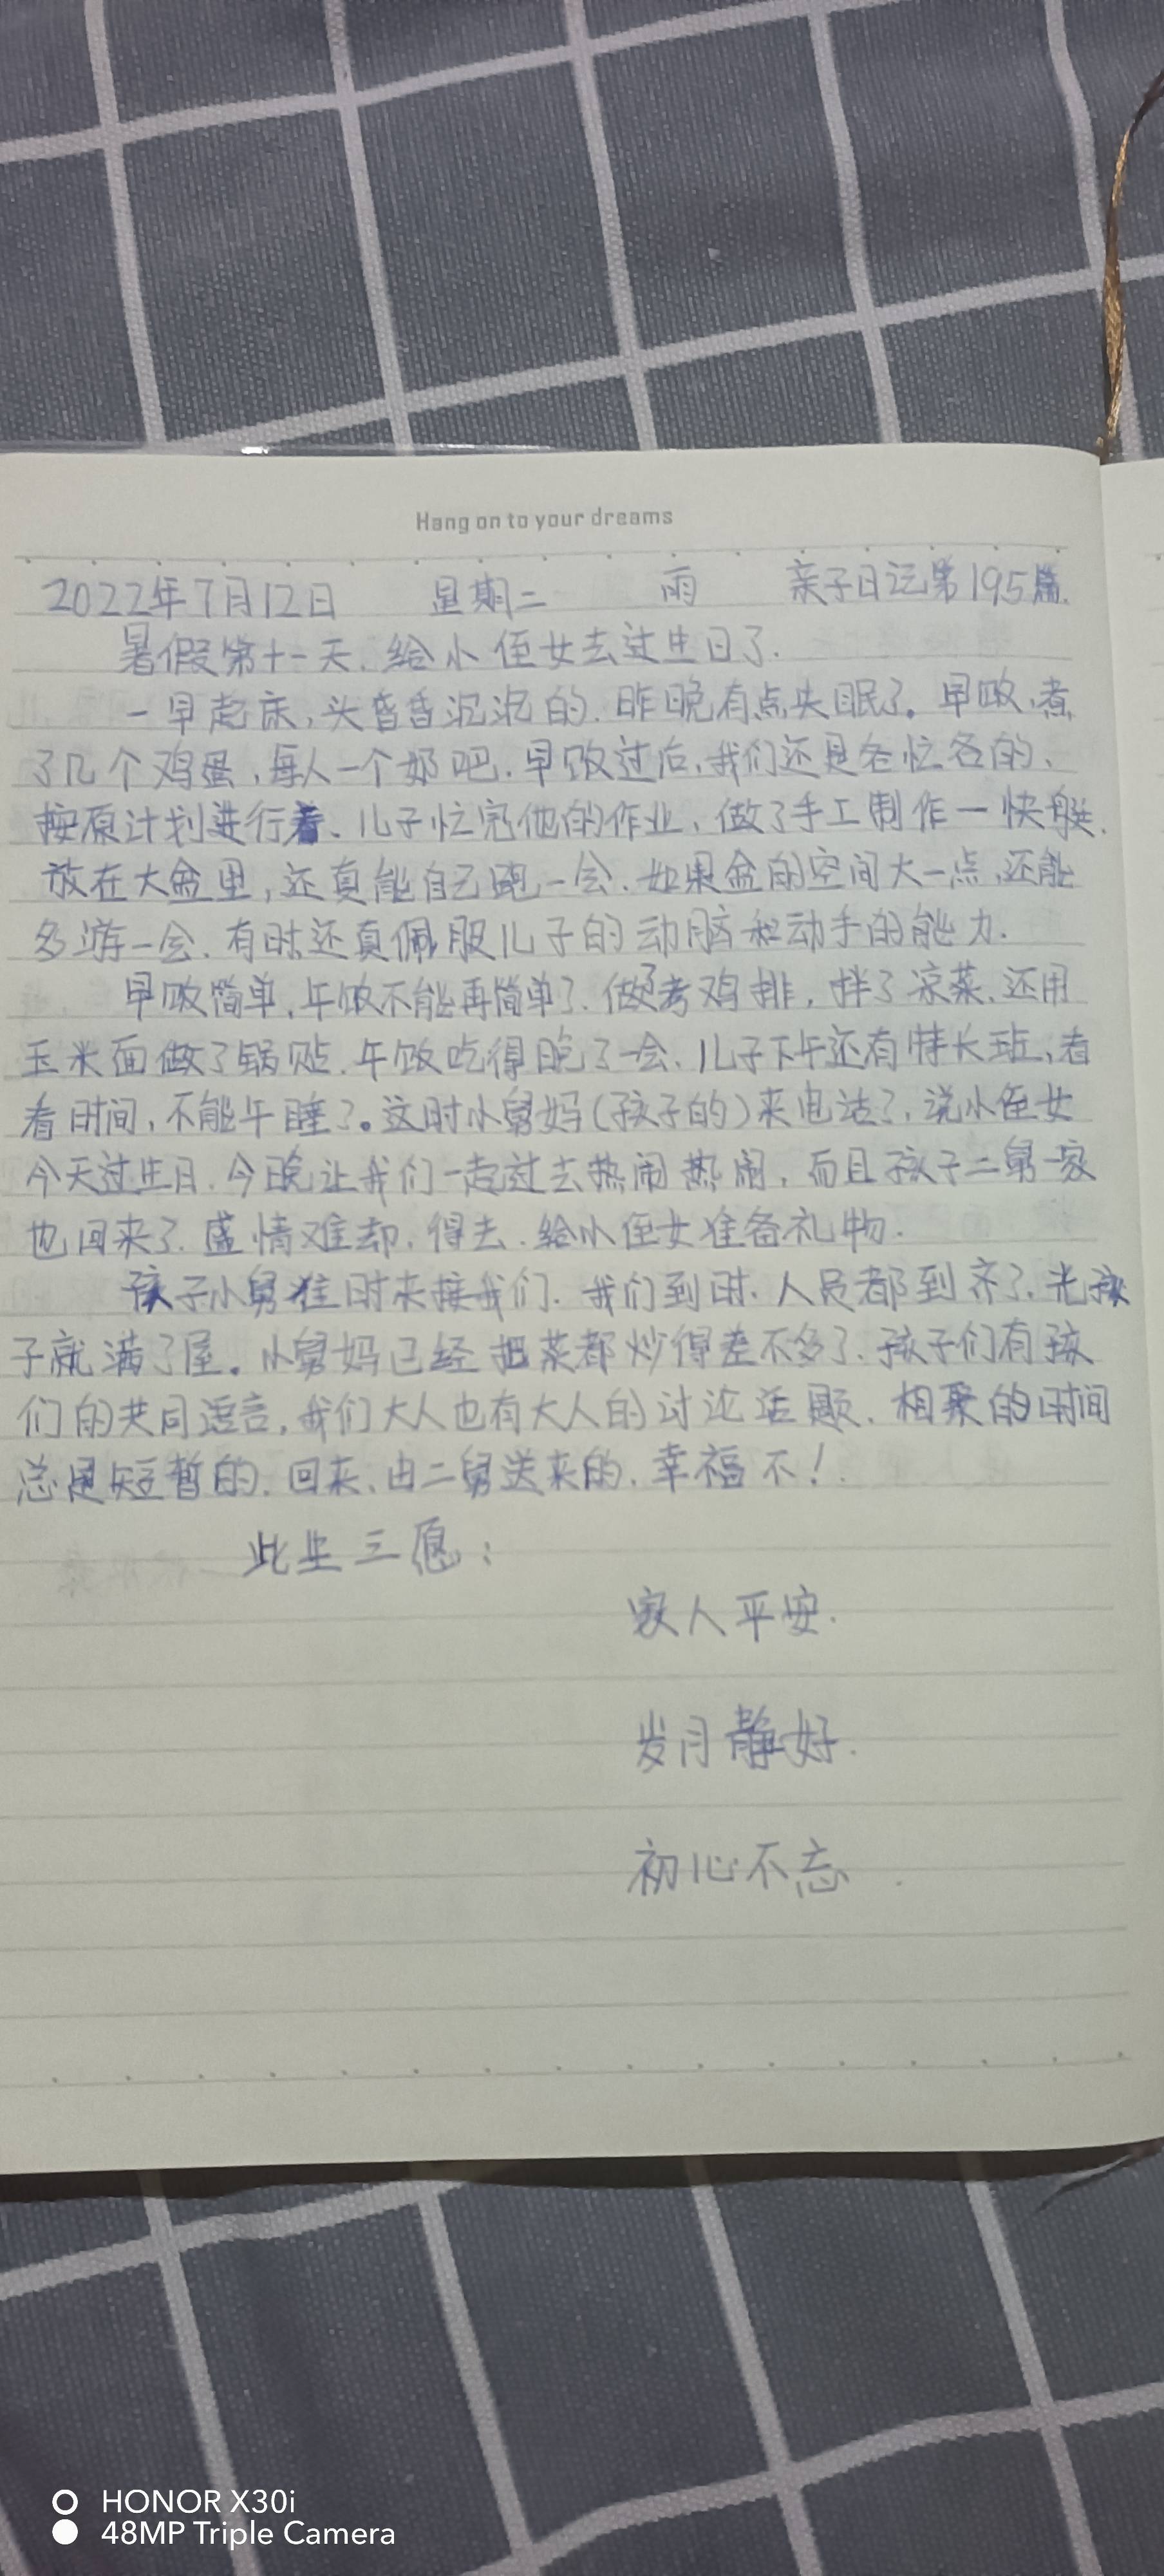 Hang on to your dreams
2022年7月12日 星期二 雨 亲子日记第195篇.
暑假第十一天.给小侄女去过生日了.
一早起床,头昏昏沉沉的.昨晚有点失眠了。早饭,煮
了几个鸡蛋,每人一个奶吧.早饭过后,我们还是各忙各的、
按原计划进行着、儿子忙完他的作业,做了手工制作一快艇.
放在大盆里,还真能自己跑一会.如果盆的空间大一点,还能
多游一会.有时还真佩服儿子的动脑和动手的能力.
早饭简单,午饭不能再简单了.做了考鸡排,拌了凉菜.还用
玉米面做了锅贴.午饭吃得晚了一会、儿子下午还有特长班、看
看时间,不能午睡了。这时小舅妈(孩子的)来电话了,说小侄女
今天过生日.今晚让我们一起过去热闹热闹,而且孩子二舅一家
也回来了.盛情难却,得去.给小侄女准备礼物.
孩子小舅准时来接我们.我们到时.人员都到齐了.光孩
子就满了屋。小舅妈已经把菜都炒得差不多了.孩子们有孩
们的共同语言,我们大人也有大人的讨论话题.相聚的时间
总是短暂的.回来、由二舅送来的.幸福不!.
此生三愿:
家人平安.
岁月静好.
初心不忘.
HONOR X30i
48MP Triple Camera